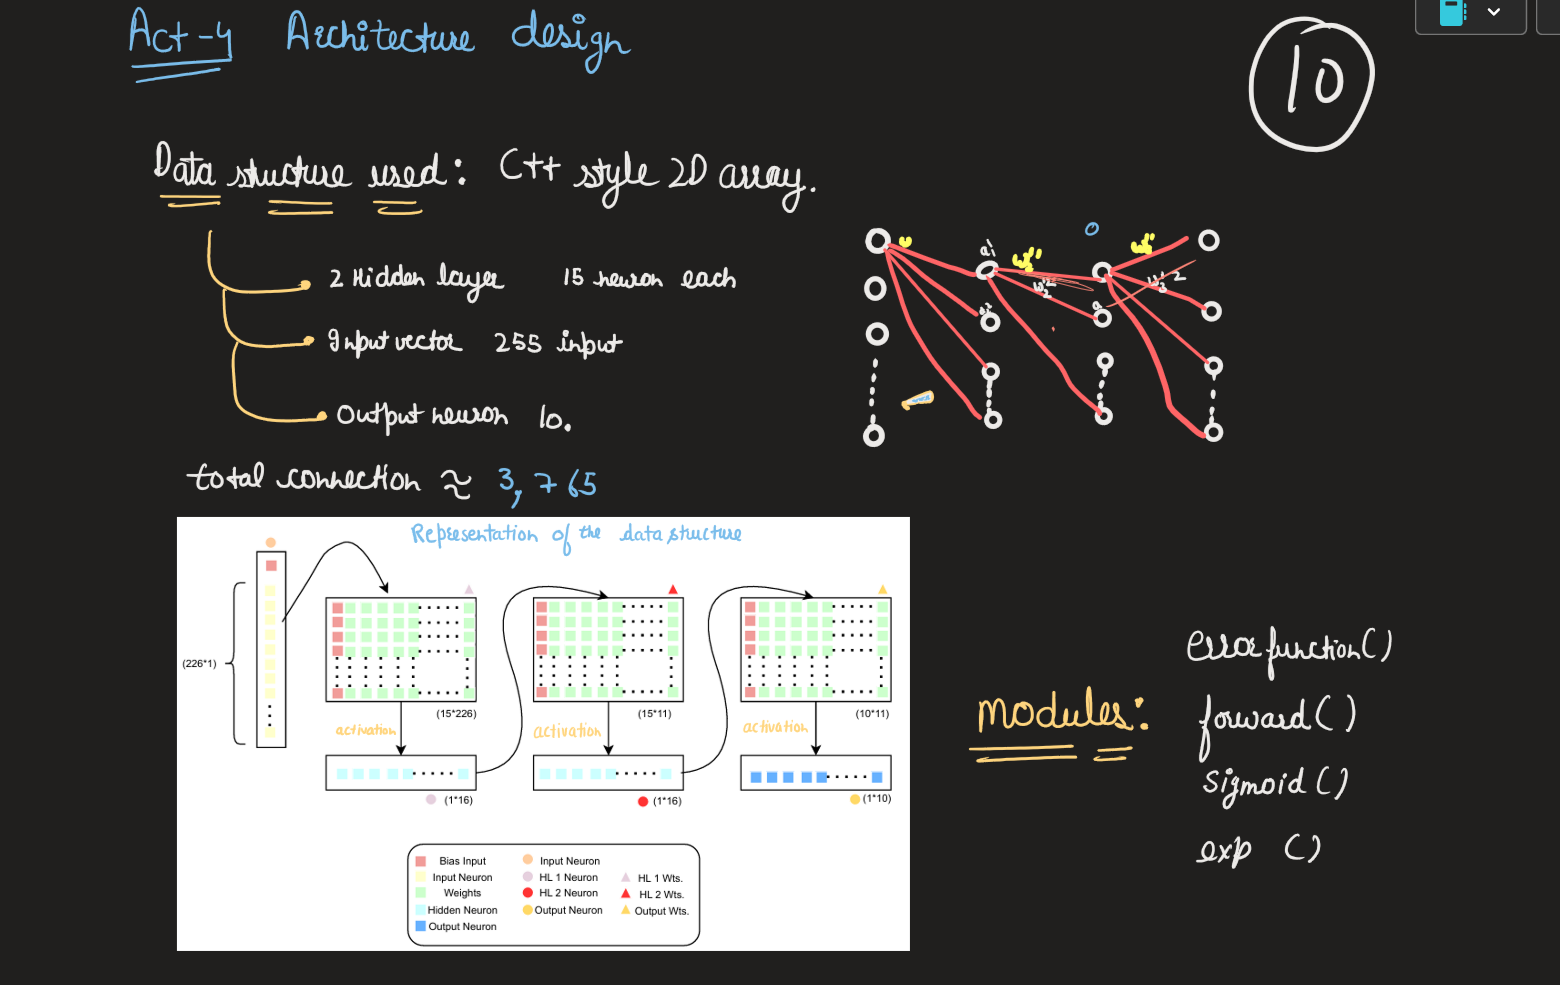 Act-4 Architecture design
10
Data structure used: C++ style 2D array.
2 Hidden layer 15 neuron each
Input vector 255 input
Output neuron 10.
total connection ≈ 3,765
Representation of the data structure
(226*1)
(15*226)
(15*11)
(10*11)
activation
activation
activation
(1*16)
(1*16)
(1*10)
Bias Input
Input Neuron
Weights
Hidden Neuron
Output Neuron
Input Neuron
HL 1 Neuron
HL 2 Neuron
Output Neuron
HL 1 Wts.
HL 2 Wts.
Output Wts.
Modules:
error function()
forward()
sigmoid()
exp ()